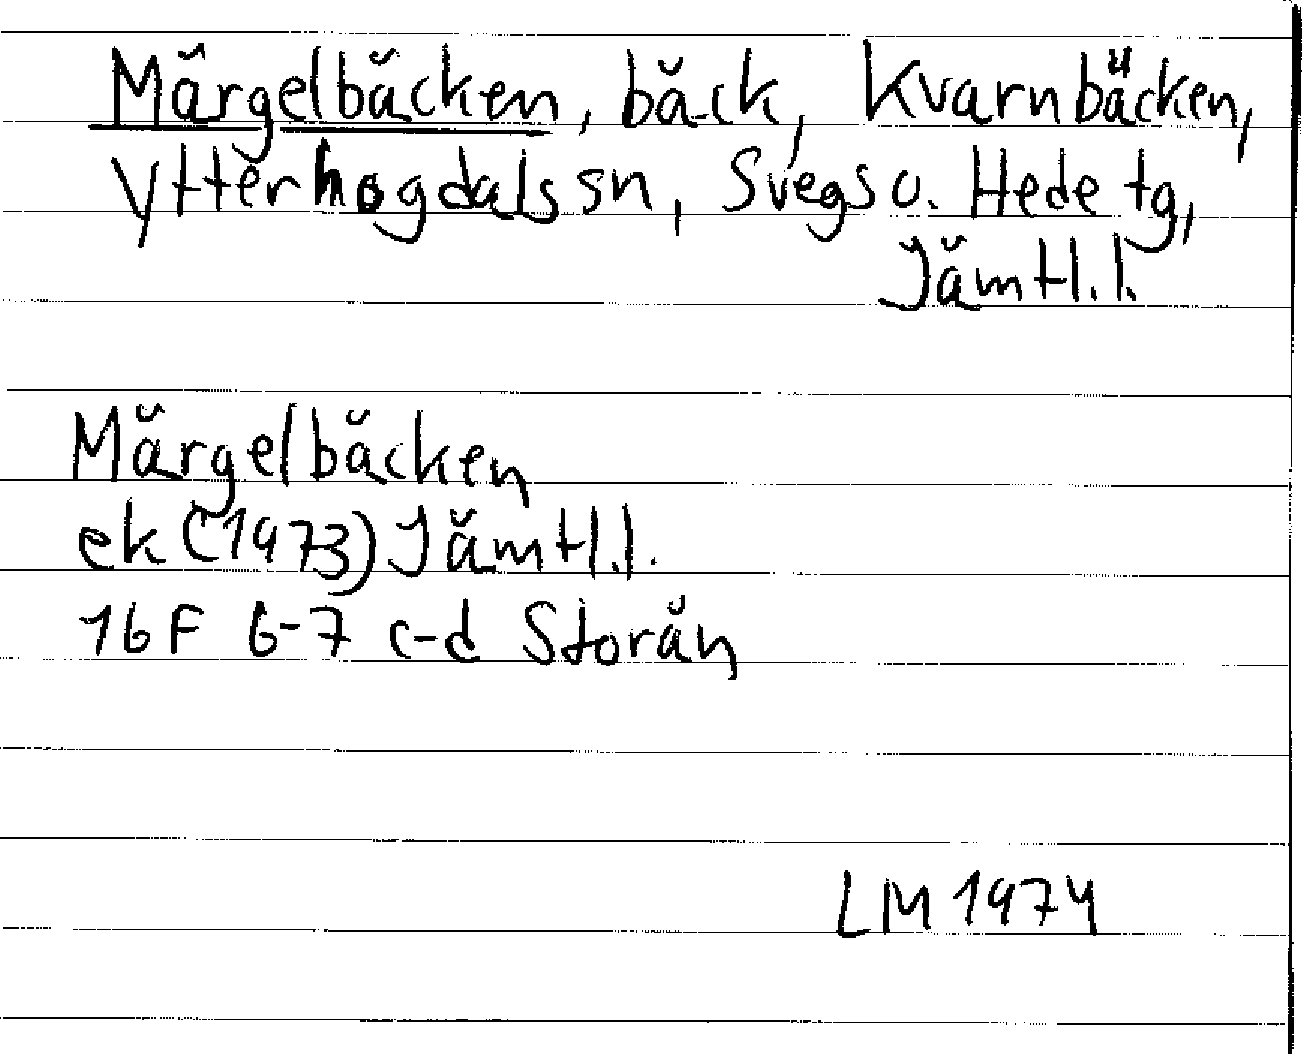 Märgelbäcken, bäck, Kvarnbäcken,
Ytterhogdals sn, Svegs o. Hede tg,
Jämtl. l.
Märgelbäcken
ek (1973) Jämtl. l.
16 F 6-7 c-d Storån
LM 1974